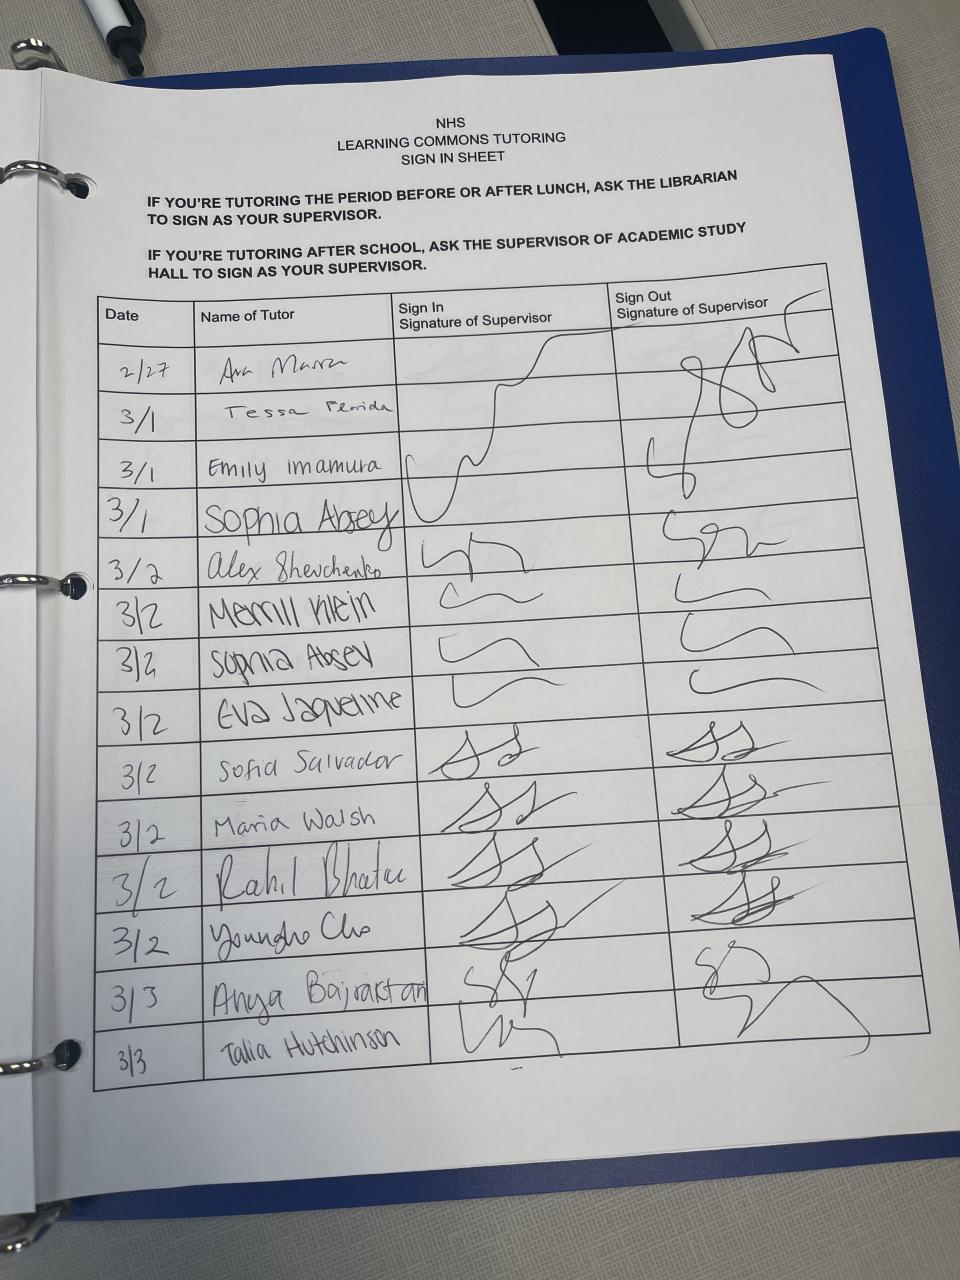 NHS
LEARNING COMMONS TUTORING
SIGN IN SHEET
IF YOU'RE TUTORING THE PERIOD BEFORE OR AFTER LUNCH, ASK THE LIBRARIAN
TO SIGN AS YOUR SUPERVISOR.
IF YOU'RE TUTORING AFTER SCHOOL, ASK THE SUPERVISOR OF ACADEMIC STUDY
HALL TO SIGN AS YOUR SUPERVISOR.
Date Name of Tutor Sign In Signature of Supervisor Sign Out Signature of Supervisor
2/27 Ava
3/1 Tessa
3/1 Emily imamura
3/1 Sophia Absey
3/2 Alex Shevchenko
3/2 Merrill Klein
3/2 Sophia Absey
3/2 Eva Jaqueline
3/2 Sofia Salvador
3/2 Maria Walsh
3/2 Rahil
3/2 Youngho Cho
3/3 Anya Bajraktari
3/3 Talia Hutchinson